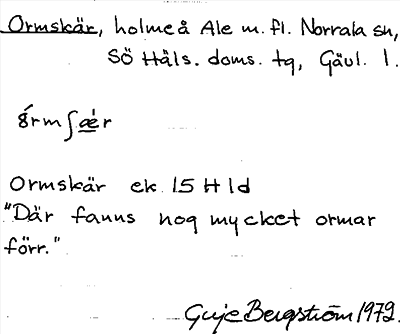 Ormskär, holmeå Ale m.fl. Norrala sn,
Sö Häls. doms. tg, Gävl. l.
ormʃæ̀r
Ormskär ek. 15 H 1d
"Där fanns nog mycket ormar
förr."
Guje Bergström 1972.